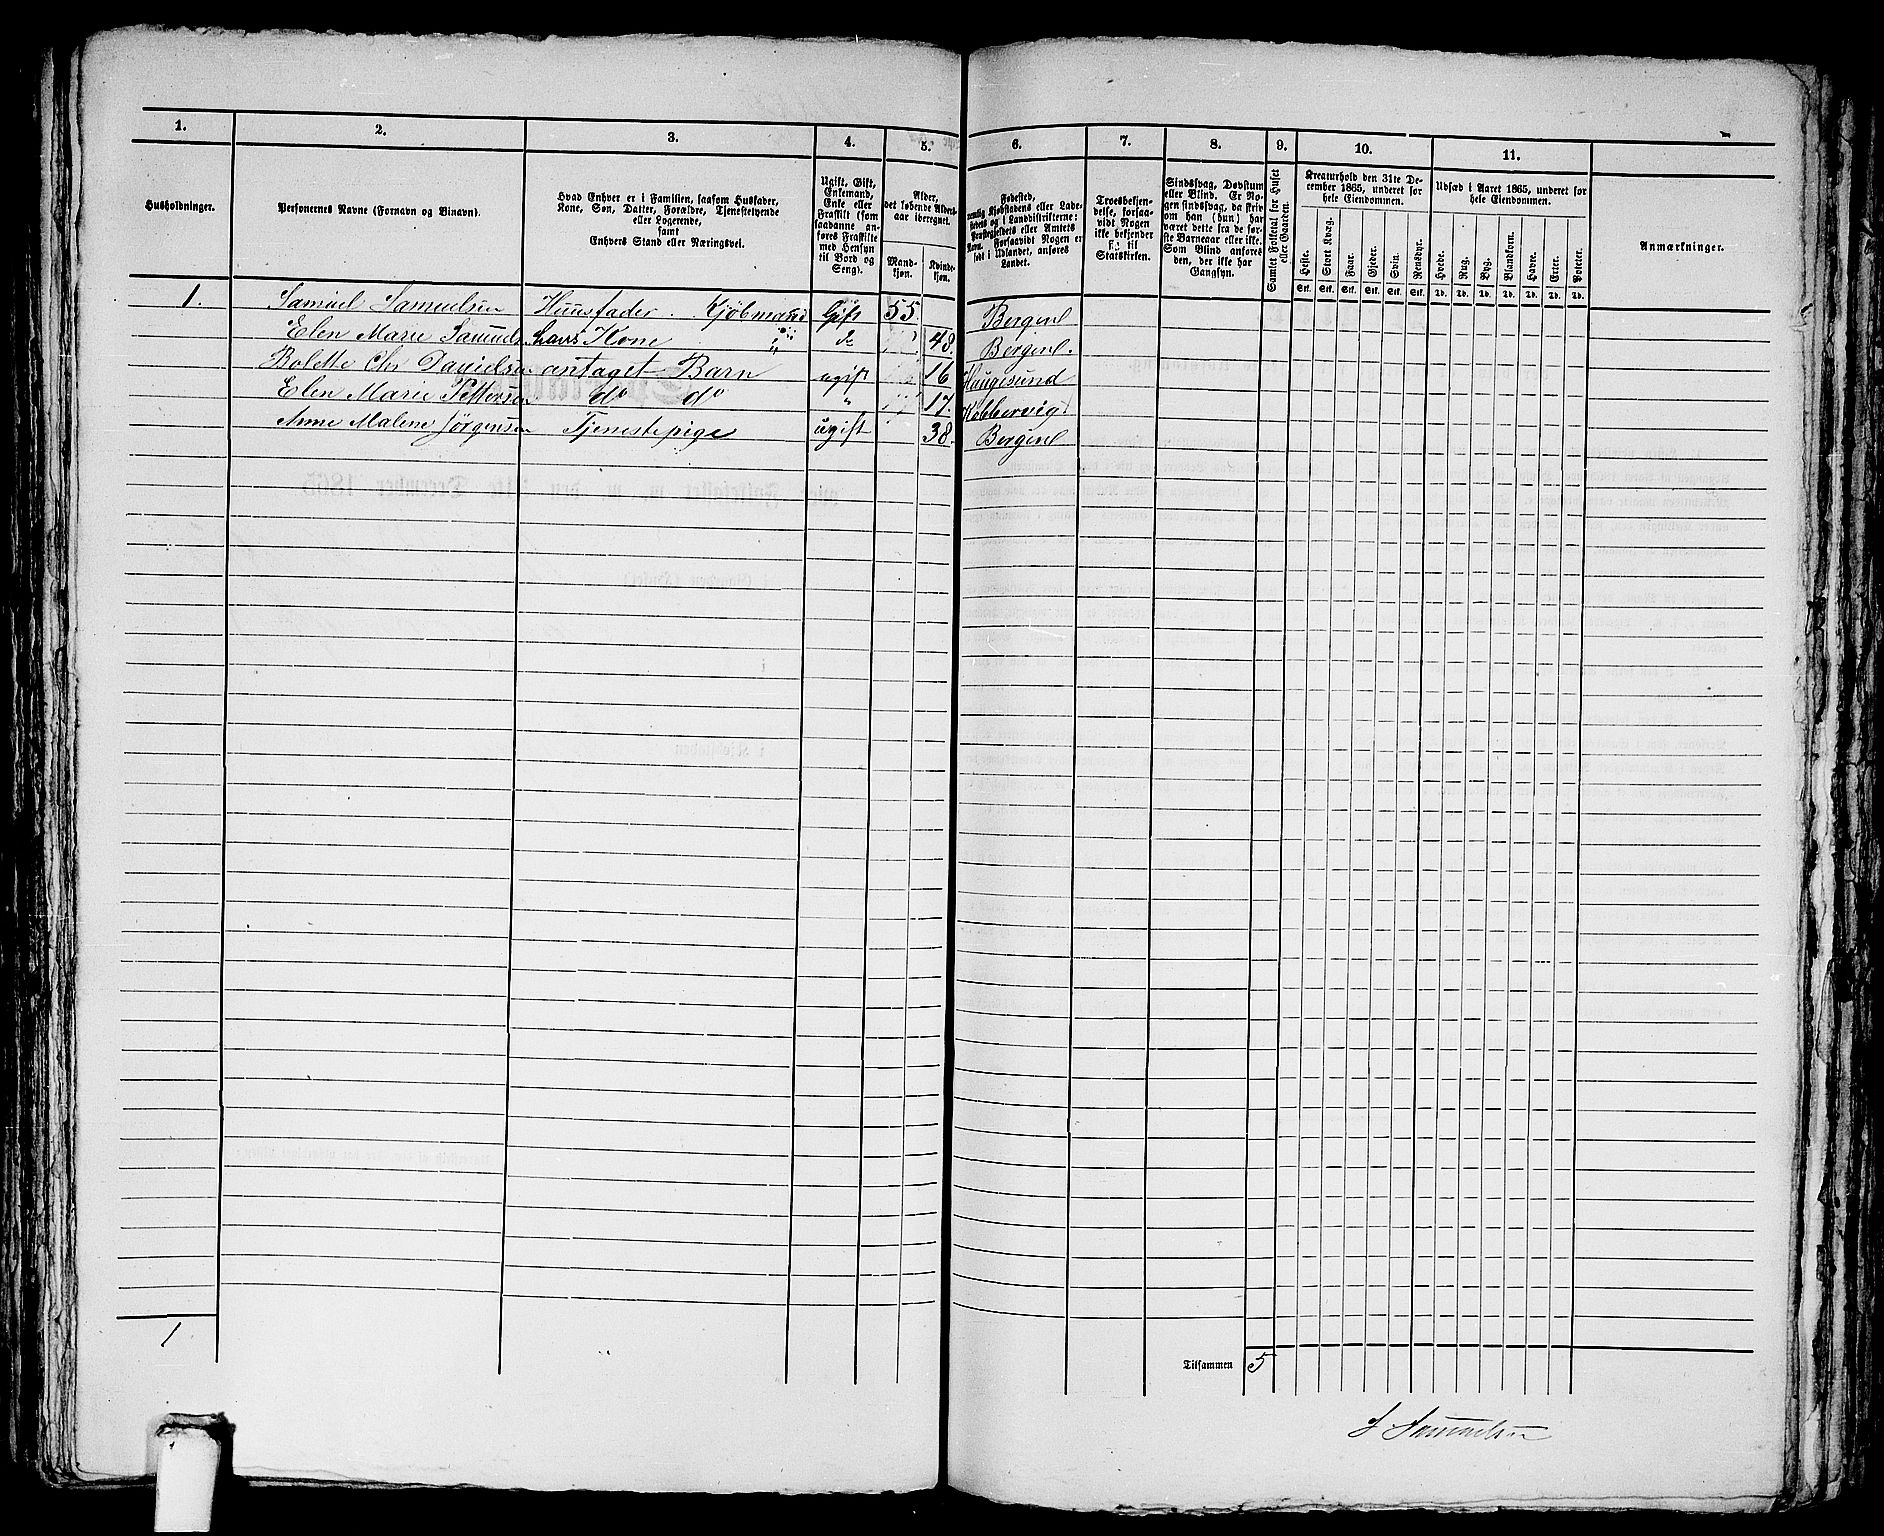 1. 2. 3. 4. 5. 6. 7. 8. 9. 10. 11.
Husholdninger.
Personernes Navne (Fornavn og Binavn).
Hvad Enhver er i Familien, saasom Husfader,
Kone, Søn, Datter, Forældre, Tjenestetyende
eller Logerende,
samt
Enhvers Stand eller Næringsvei.
Ugift, Gift,
Enkemand,
Enke eller
Fraskilt (som
saadanne an-
føres Fraskilte
med Hensyn
til Bord og
Seng).
Alder,
det løbende Alders-
aar iberegnet.
Mand-
kjøn.
Kvinde-
kjøn.
Fødested,
nemlig Kjøbstadens eller Lade-
stedets og i Landdistrikterne:
Præstegjeldets eller Amtets
Navn. Forsaavidt Nogen er
født i Udlandet, anføres
Landet.
Troesbekjen-
delse, forsaa-
vidt Nogen
ikke bekjender
sig til
Statskirken.
Sindssvag, Døvstum
eller Blind. Er No-
gen sindssvag, da skriv
om han (hun) har
været dette fra de før-
ste Barneaar eller ikke.
Som Blind anføres
den, der ikke har
Gangsyn.
Samlet Folketal for Huset
eller Gaarden.
Kreaturhold den 31te De-
cember 1865, underet for
hele Eiendommen.
Heste. Stort Kvæg. Faar. Gjeder. Svin. Rensdyr.
Stk. Stk. Stk. Stk. Stk. Stk.
Udsæd i Aaret 1865, underet for
hele Eiendommen.
Hvede. Rug. Byg. Blandkorn. Havre. Erter. Poteter.
Td. Td. Td. Td. Td. Td. Td.
Anmærkninger.
1. Samuel Samuelsen Huusfader. Kjöbmand Gift 55 Bergen
Elen Marie Samuels hans Kone do 48. Bergen.
Bolette Chr Danielsen antaget Barn ugift 16 Haugesund
Elen Marie Pettersen do do " 17. Kobbervig
Anne Malene Jörgensen Tjenestepige ugift 38. Bergen
1
Tilsammen 5
S Samuelsen